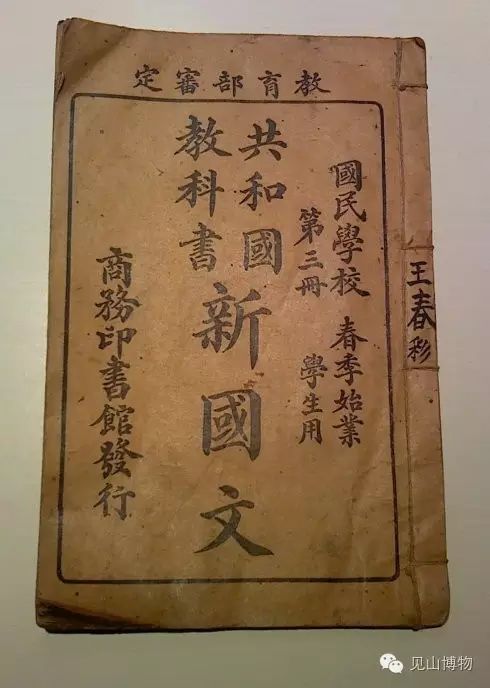 教育部審定
國民學校 春季始業
第三冊 學生用
共和國
教科書
新國文
商務印書館發行
王春彩
见山博物